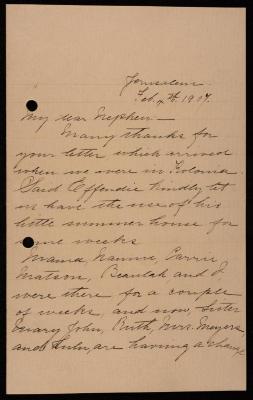 Jerusalem
Feb. 4th. 1907.
My dear Nephew —
Many thanks for
your letter which arrived
when we were in Kolonia.
Said Effendie kindly let
us have the use of his
little summer house for
some weeks
Mama, Nannie, Carrie
Matson, Beaulah and I
were there for a couple
of weeks, and now, Sister
Mary John, Ruth, Mrs. Meyers,
and Lulu, are having a change